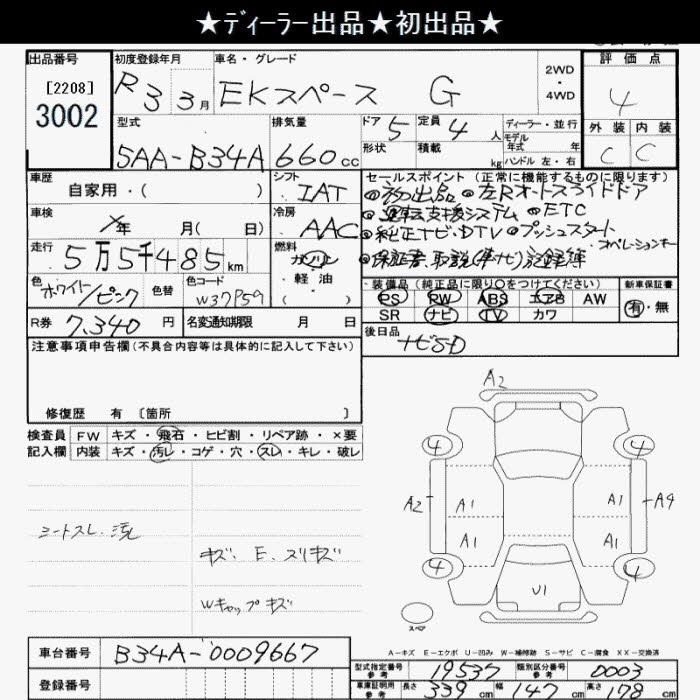 ★ﾃﾞｨｰﾗｰ出品★初出品★
出品番号 初度登録年月 車名・グレード 評価点
[2208] 3002 R3 3月 EKスペース G 2WD・4WD 4
型式 排気量 ドア 5 定員 4人 ディーラー・並行 外装 内装
5AA-B34A 660cc 形状 積載 kg モデル年式 年 ハンドル 左・右 C C
車歴 自家用・( ) シフト IAT
セールスポイント (正常に機能するものに限ります)
◎初出品 ◎左Rオートスライドドア
車検 ×年 月( 日) 冷房 AAC
◎運転支援システム ◎ETC
◎純正ナビ・DTV ◎プッシュスタート
・オペレーションキー
走行 5万5千485km 燃料 ガソリン・軽油・( )
◎保証書、取説(車ナビ)記録簿
色 ホワイト/ピンク 色替 色コード W37P59
装備品 (純正品に限り○をつけてください) 新車保証書
PS PW ABS エアB AW 有・無
SR ナビ TV カワ
R券 7,340円 名変通知期限 月 日
後日品 ナビSD
注意事項申告欄(不具合内容等は具体的に記入して下さい)
修復歴 有 〔箇所 〕
検査員 FW キズ・飛石・ヒビ割・リペア跡・×要
記入欄 内装 キズ・汚レ・コゲ・穴・スレ・キレ・破レ
A2
4 4
A2 A1 A1 A9
A1 A1
4 4
U1
スペア
シートスレ、汚レ
キズ、E、スリキズ
Wキャップキズ
A-キズ E-エクボ U-凹み W-補修跡 S-サビ C-腐食 XX-交換済
車台番号 B34A-0009667
型式指定番号 参考 19537 類別区分番号 参考 0003
登録番号
車庫証明用 参考 長さ 339cm 幅 147cm 高さ 178cm